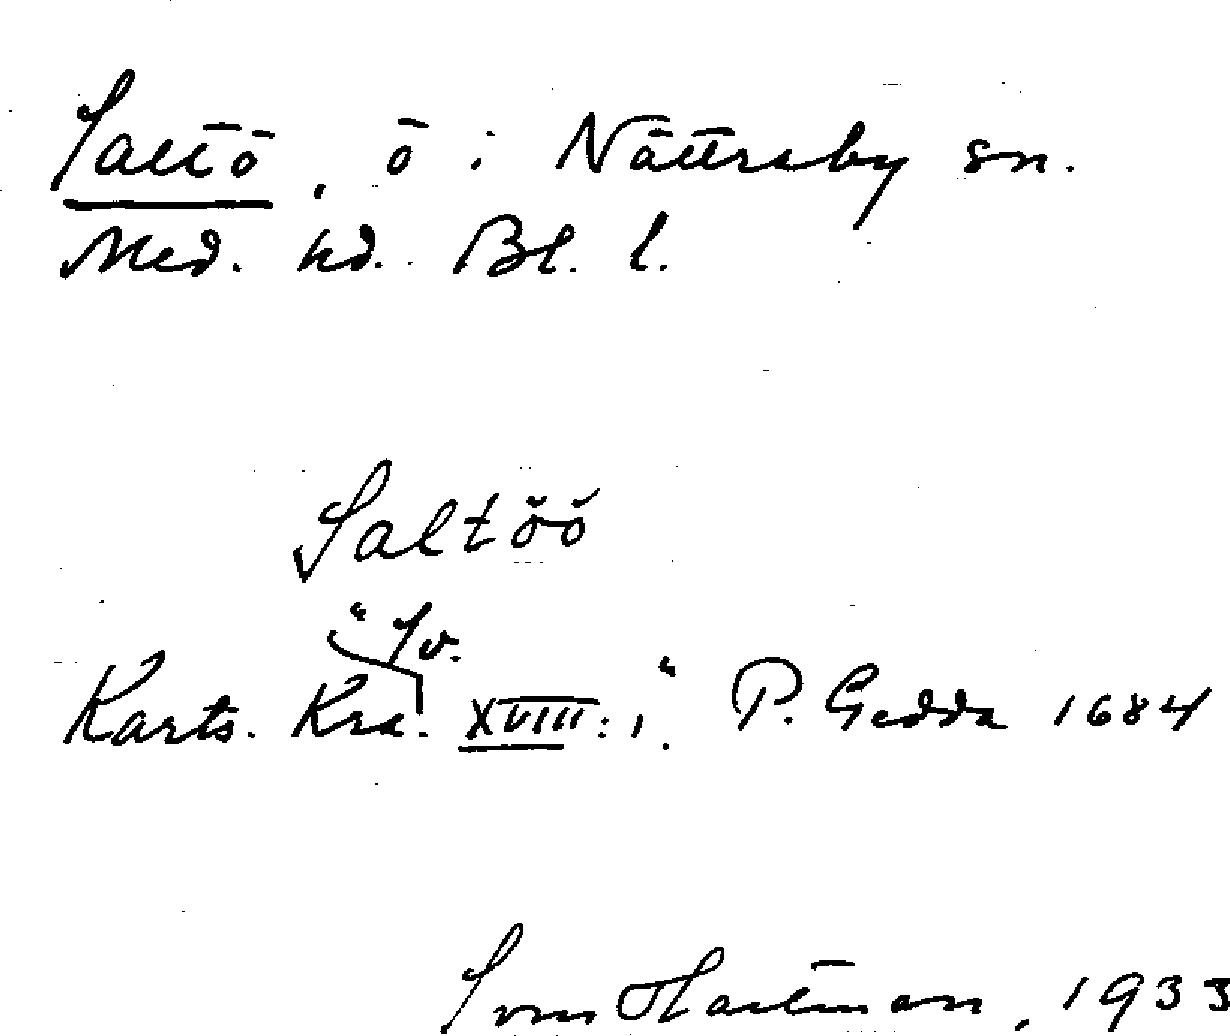 Saltö, ö i Nättraby sn.
Med. hd. Bl. l.
Saltöö
"Sv.
Karts. Kra. XVIII: 1." P. Gedda 1684
Sven Hartman, 1933